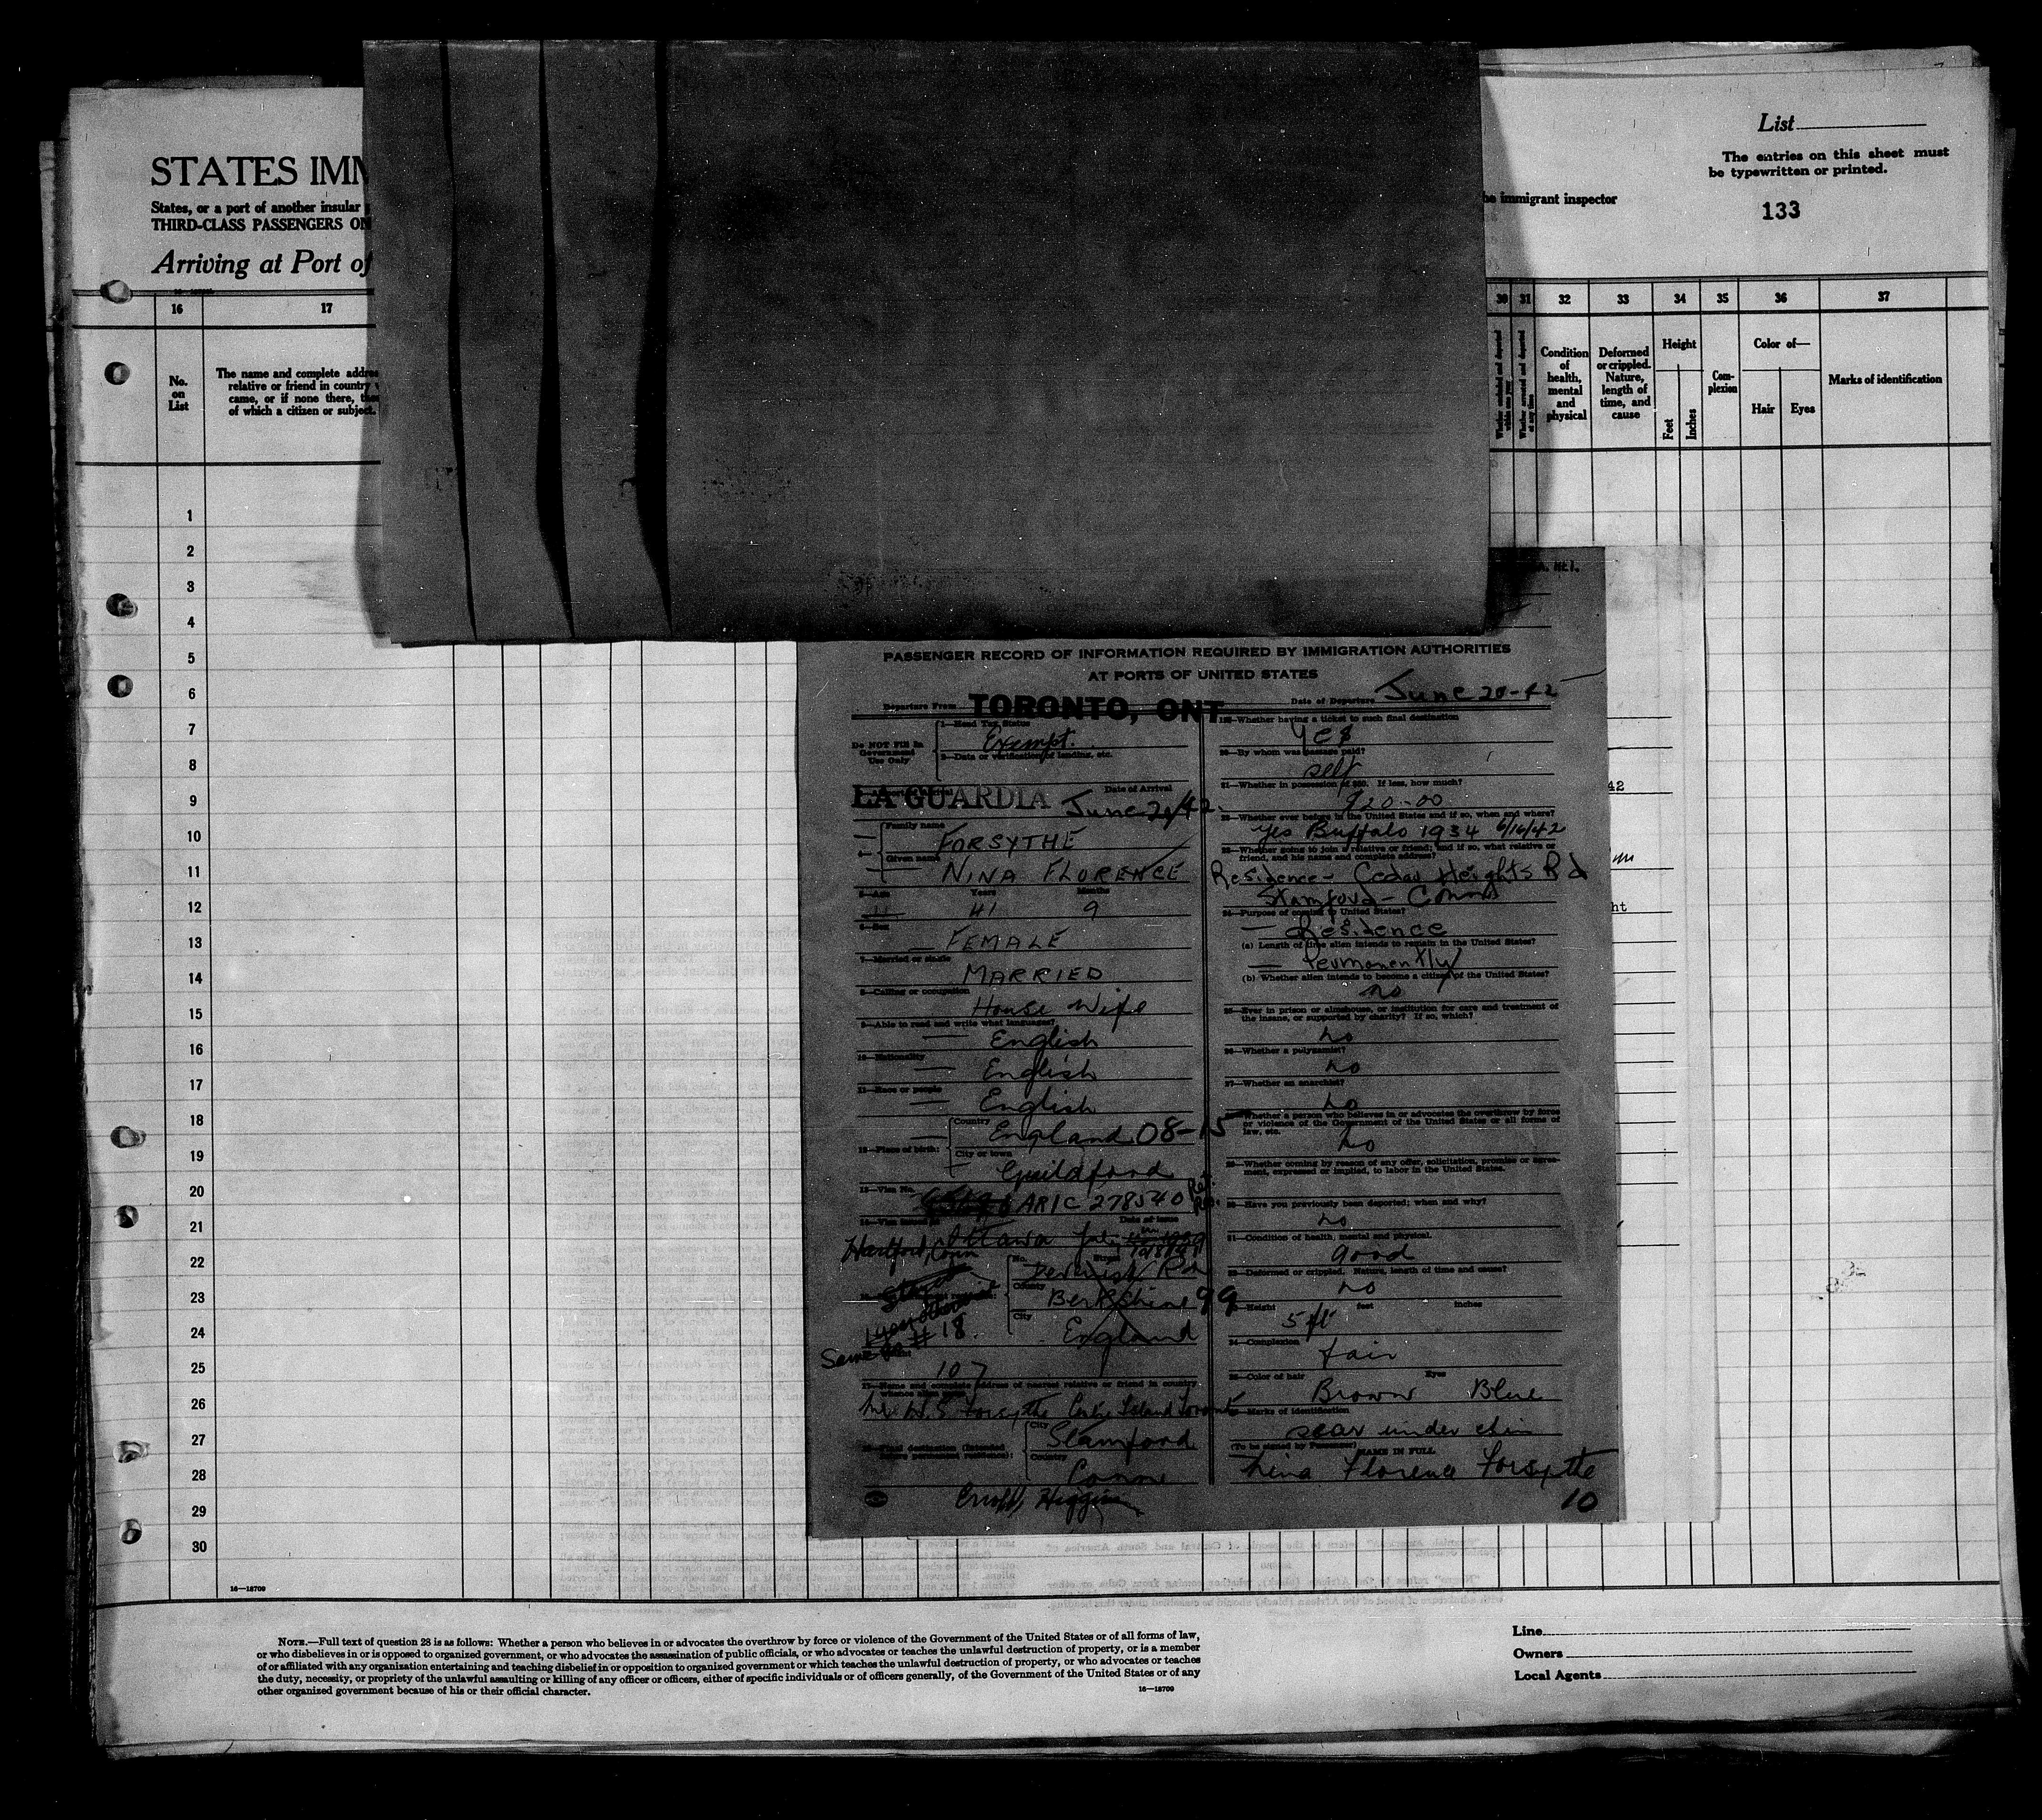 List
The entries on this sheet must
be typewritten or printed.
133
STATES IMM
States, or a port of another insular
THIRD-CLASS PASSENGERS ON
Arriving at Port of
he immigrant inspector
16 17 30 31 32 33 34 35 36 37
No.
on
List
The name and complete addre
relative or friend in country
came, or if none there,
of which a citizen or subject.
Condition
of
health,
mental
and
physical
Deformed
or crippled.
Nature,
length of
time, and
cause
Height
Feet
Inches
Com-
plexion
Color of—
Hair Eyes
Marks of identification
1
2
3
4
5
6
7
8
9
10
11
12
13
14
15
16
17
18
19
20
21
22
23
24
25
26
27
28
29
30
16—18709
PASSENGER RECORD OF INFORMATION REQUIRED BY IMMIGRATION AUTHORITIES
AT PORTS OF UNITED STATES
Departure From TORONTO, ONT
Date of Departure June 20-42
Do NOT Fill In
Government
Use Only
1—Head Tax Status
Exempt.
2—Date or verification of landing, etc.
Date of Arrival
LA GUARDIA June 20/42
Family name
FORSYTHE
Given name
NINA FLORENCE
5—Age Years Months
41 9
6—Sex
FEMALE
7—Married or single
MARRIED
8—Calling or occupation
House Wife
9—Able to read and write what languages?
English
10—Nationality
English
11—Race or people
English
12—Place of birth:
Country
England 08-15
City or town
Guildford
13—Visa No.
ARIC 278540
Date of Issue
Hartford, Conn Ottawa
No. Street
Rd
County
Berkshire 99
City
England
Same as # 18.
107
17—Name and complete address of nearest relative or friend in country
Forsythe Island Toronto
City
Stamford
Country
Conn
19—Whether having a ticket to such final destination
Yes
20—By whom was passage paid?
self
21—Whether in possession of $50. If less, how much?
$20-00
22—Whether ever before in the United States and if so, when and where?
Yes Buffalo 1934 6/16/42
23—Whether going to join a relative or friend; and if so, what relative or
friend, and his name and complete address?
Residence - Cedar Heights Rd
Stamford - Conn
24—Purpose of coming to United States?
Residence
(a) Length of time alien intends to remain in the United States?
Permanently
(b) Whether alien intends to become a citizen of the United States?
no
25—Ever in prison or almshouse, or institution for care and treatment of
the insane, or supported by charity? If so, which?
no
26—Whether a polygamist?
no
27—Whether an anarchist?
no
Whether a person who believes in or advocates the overthrow by force
or violence of the Government of the United States or all forms of
law, etc.
no
29—Whether coming by reason of any offer, solicitation, promise or agree-
ment, expressed or implied, to labor in the United States.
30—Have you previously been deported; when and why?
no
31—Condition of health, mental and physical.
good
32—Deformed or crippled. Nature, length of time and cause?
no
33—Height feet inches
5 ft
34—Complexion
fair
35—Color of hair Eyes
Brown Blue
36—Marks of identification
scar under chin
(To be signed by Passenger) NAME IN FULL
Nina Florence Forsythe
10
NOTE.—Full text of question 28 is as follows: Whether a person who believes in or advocates the overthrow by force or violence of the Government of the United States or of all forms of law,
or who disbelieves in or is opposed to organized government, or who advocates the assassination of public officials, or who advocates or teaches the unlawful destruction of property, or is a member
of or affiliated with any organization entertaining and teaching disbelief in or opposition to organized government or which teaches the unlawful destruction of property, or who advocates or teaches
the duty, necessity, or propriety of the unlawful assaulting or killing of any officer or officers, either of specific individuals or of officers generally, of the Government of the United States or of any
other organized government because of his or their official character.
16—18709
Line
Owners
Local Agents